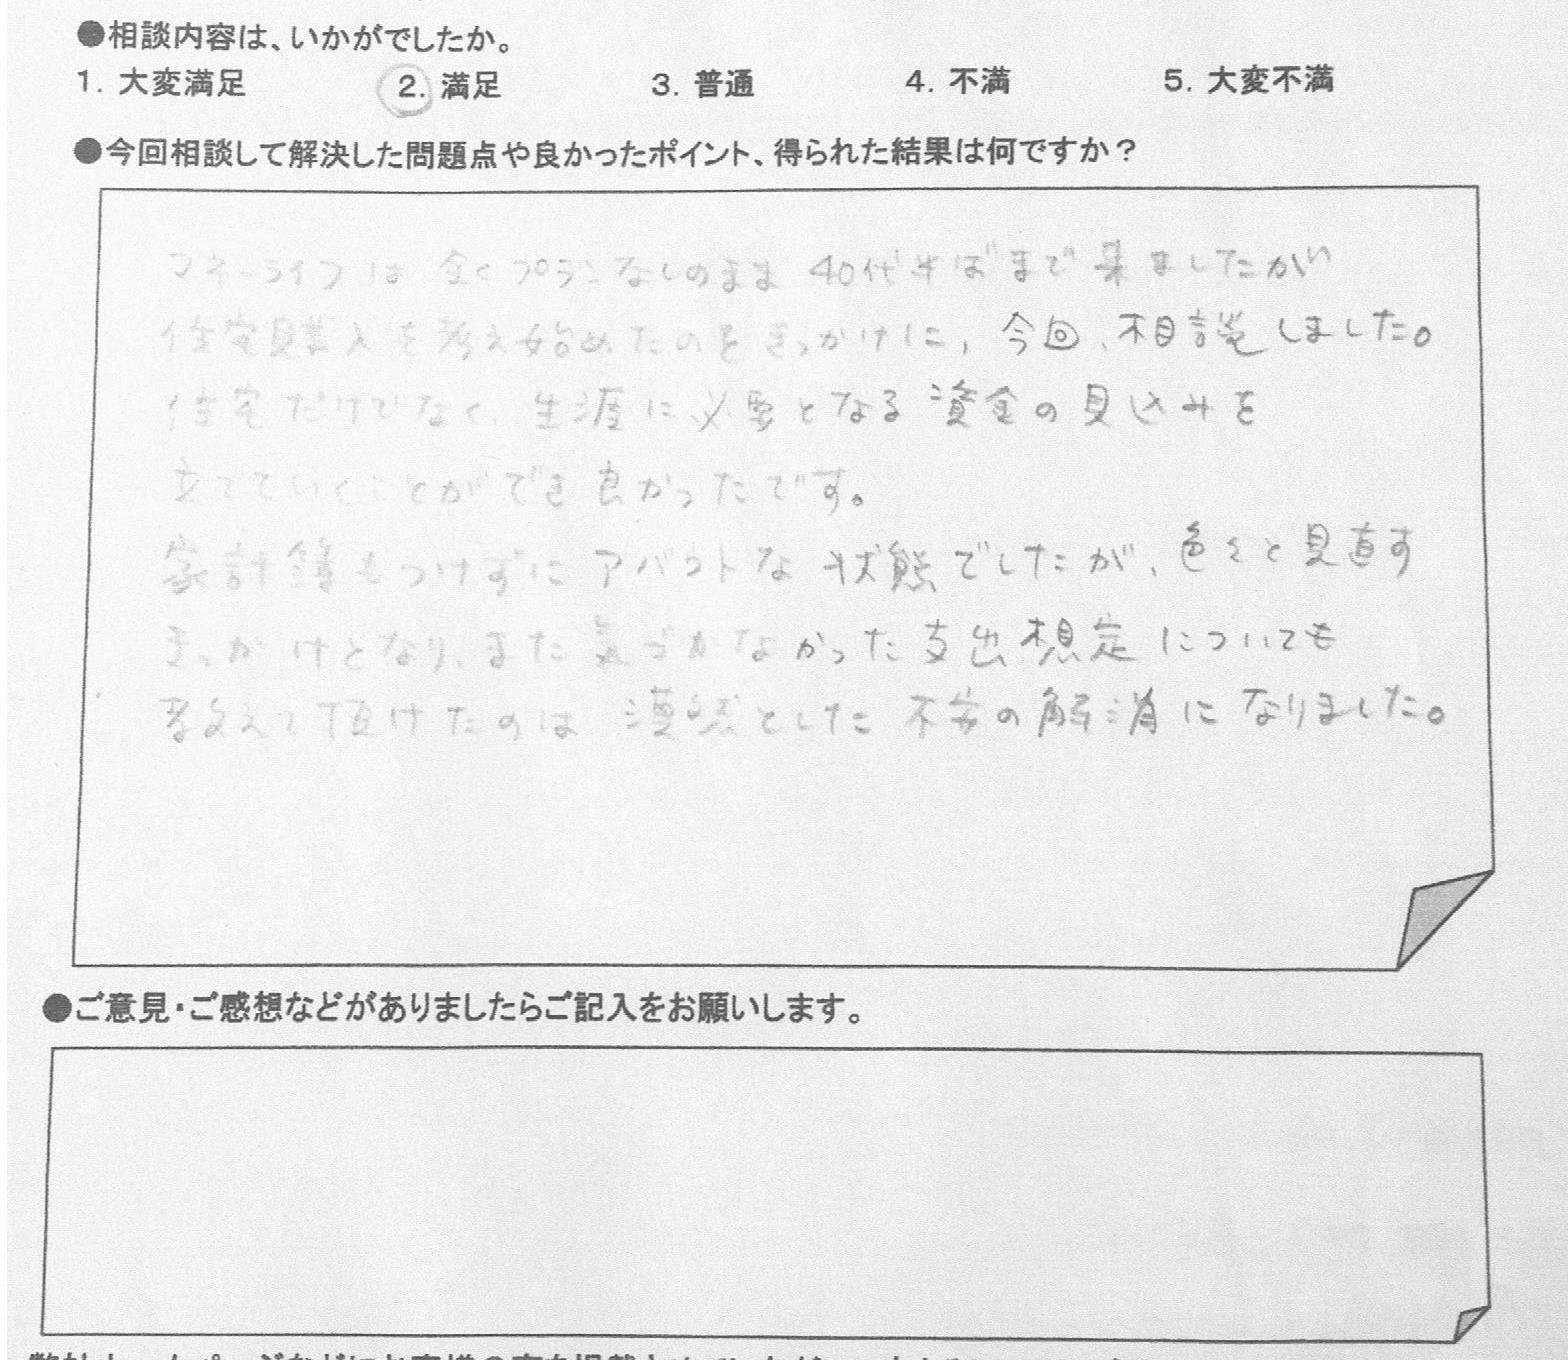 ●相談内容は、いかがでしたか。
1. 大変満足 2. 満足 3. 普通 4. 不満 5. 大変不満
●今回相談して解決した問題点や良かったポイント、得られた結果は何ですか？
マネーライフは全くプランなしのまま40代半ばまで来ましたが
住宅購入を考え始めたのをきっかけに、今回、相談しました。
住宅だけでなく、生涯に必要となる資金の見込みを
立てていくことができ良かったです。
家計簿もつけずにアバウトな状態でしたが、色々と見直す
きっかけとなり、また気づかなかった支出想定についても
教えて頂けたのは漠然とした不安の解消になりました。
●ご意見・ご感想などがありましたらご記入をお願いします。